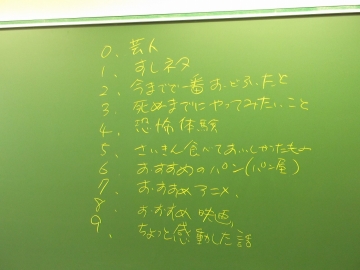 0、芸人
1、すしネタ
2、今までで一番おどろいたこと
3、死ぬまでにやってみたいこと
4、恐怖体験
5、さいきん食べておいしかったもの
6、おすすめのパン(パン屋)
7、おすすめアニメ、
8、おすすめ映画、
9、ちょっと感動した話